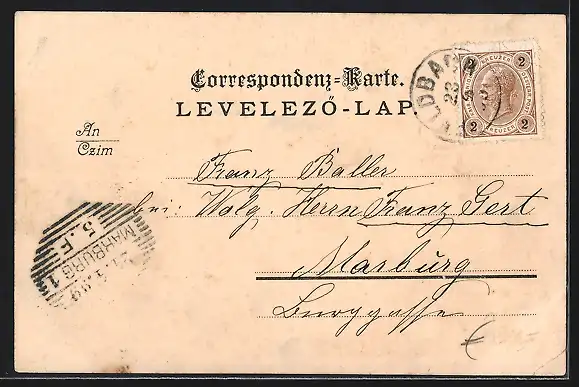 Correspondenz-Karte.
LEVELEZŐ-LAP
An
Czim
2 KREUZER 2
2 KREUZER 2
LDBA
23
Franz Baller
bei: Wolg. Herrn Franz Gert
Marburg
Burggasse
MARBURG 1
5. F